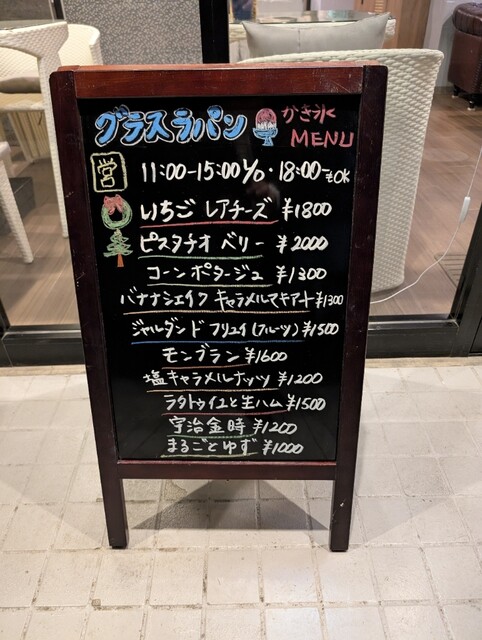 グラスラパン かき氷 MENU
営 11:00-15:00 L/O・18:00-もOK
いちごレアチーズ ¥1800
ピスタチオベリー ¥2000
コーンポタージュ ¥1300
バナナシェイク キャラメルマキアート ¥1300
ジャルダンド フリュイ(フルーツ) ¥1500
モンブラン ¥1600
塩キャラメルナッツ ¥1200
ラタトゥイユと生ハム ¥1500
宇治金時 ¥1200
まるごとゆず ¥1000